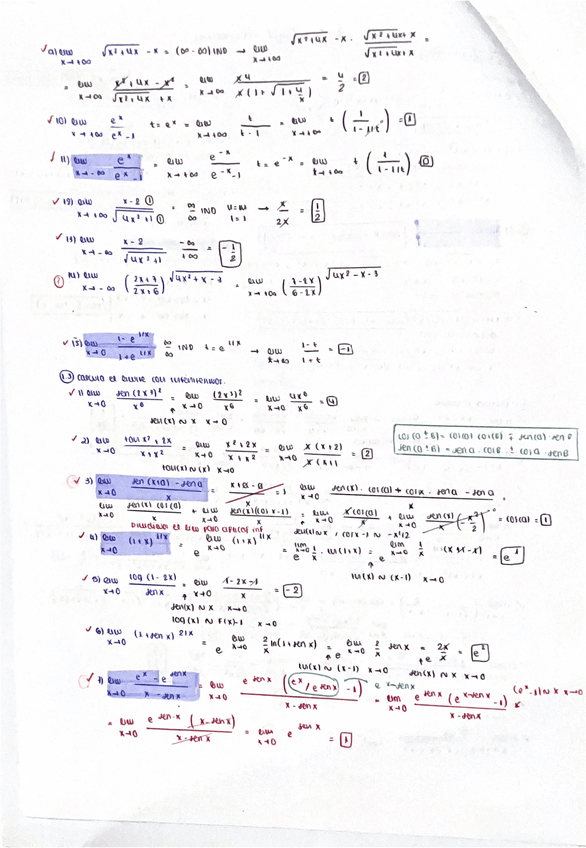 a) lim x→+∞ √x²+4x - x = (∞-∞) IND → lim x→+∞ √x²+4x - x · √x²+4x + x / √x²+4x + x =
= lim x→+∞ x²+4x-x² / √x²+4x + x = lim x→+∞ x4 / x(1+√1+4/x) = 4/2 = 2
10) lim x→+∞ eˣ / eˣ-1 t=eˣ = lim x→+∞ t / t-1 = lim x→+∞ t (1 / 1-1/t) = 1
11) lim x→-∞ eˣ / eˣ-1 = lim x→+∞ e⁻ˣ / e⁻ˣ-1 t=e⁻ˣ = lim t→+∞ t (1 / 1-1/t) 0
12) lim x→+∞ x-2 / √4x²+1 = ∞/∞ IND → x/2x = 1/2
13) lim x→-∞ x-2 / √4x²+1 -∞/+∞ = -1/2
lim x→-∞ (2x+7 / 2x+6) √4x²+x-3 = lim x→+∞ (7-2x / 6-2x) √4x²-x-3
15) lim x→0 1-e^1/x / 1+e^1/x ∞/∞ IND t=e^1/x → lim t→+∞ 1-t / 1+t = -1
1.3) calcula el
1) lim x→0 sen(2x³)² / x⁶ = lim x→0 (2x³)² / x⁶ = lim x→0 4x⁶ / x⁶ = 4
sen(x) ∼ x x→0
2) lim x→0 tan x² + 2x / x+x² = lim x→0 x²+2x / x+x² = lim x→0 x(x+2) / x(x+1 = 2
tan(x) ∼ (x) x→0
cos(a±b) = cos(a) cos(b) ∓ sen(a)·sen B
sen(a±b) = sen a · cos B ± cos a · sen B
3) lim x→0 sen(x+a) - sen a / x = lim x→0 sen(x)·cos(a) + cos x · sen a - sen a / x
lim x→0 sen(x) cos(a) / x + lim x→0 sen(x)(cos x-1) / x = lim x→0 x cos(a) / x + lim x→0 sen(x) / x (-x²/2) = cos(a) = 1
4) lim x→0 (1+x)^1/x = e lim x→0 (1+x)^1/x = e lim x→0 1/x · ln(1+x) = e lim x→0 1/x
ln(x) ∼ (x-1) x→0
5) lim x→0 log(1-2x) / sen x = lim x→0 1-2x-1 / x = -2
sen(x) ∼ x x→0
log(x) ∼ F(x)-1 x→0
6) lim x→0 (1+sen x)^2/x = e lim x→0 2/x ln(1+sen x) = e lim x→0 2/x sen x = e 2x/x = e²
ln(x) ∼ (x-1) x→0 sen(x) ∼ x x→0
7) lim x→0 eˣ - e^sen x / x - sen x = lim x→0 e^sen x (eˣ/e^sen x - 1) / x - sen x = lim x→0 e^sen x (e^x-sen x - 1) / x - sen x (eˣ-1) ∼ x x→0
= lim x→0 e^sen x (x-sen x) / x-sen x = lim x→0 e^sen x = 1